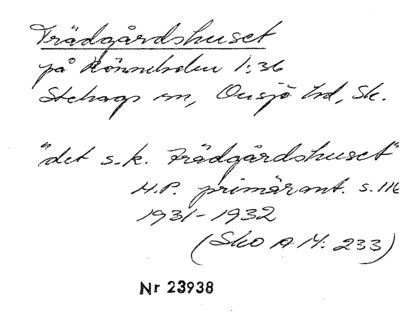 Trädgårdshuset
på Rönneholm 1:36
Stehags sn, Onsjö hd, Sk.
"det s.k. Trädgårdshuset"
H.P. primärant. s.116
1931-1932
(Sko A M: 233)
Nr 23938